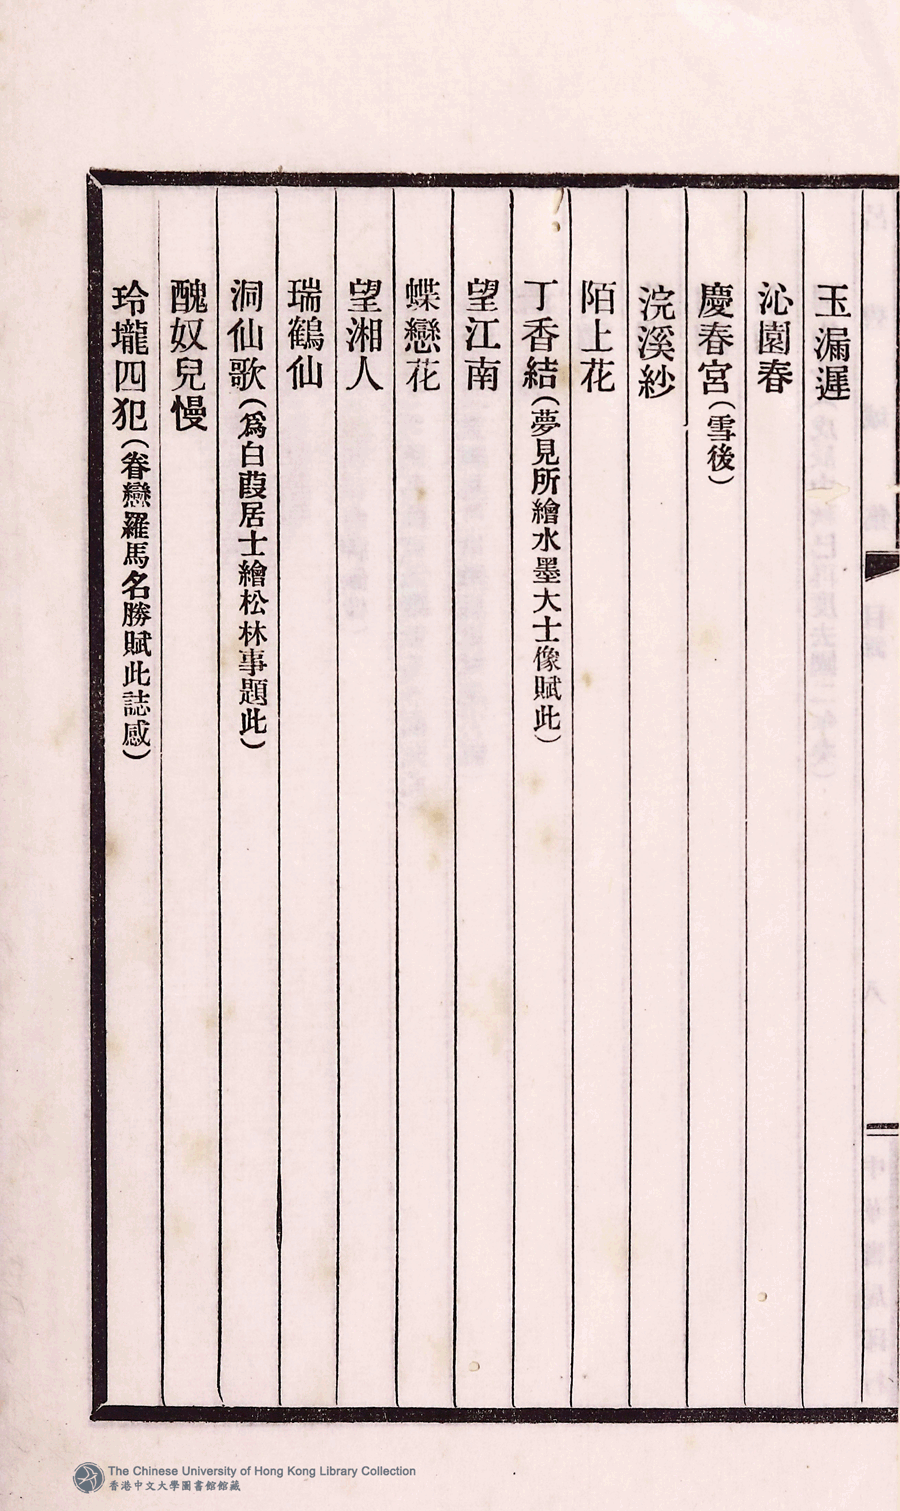 玉漏遲
沁園春
慶春宮（雪後）
浣溪紗
陌上花
丁香結（夢見所繪水墨大士像賦此）
望江南
蝶戀花
望湘人
瑞鶴仙
洞仙歌（爲白葭居士繪松林事題此）
醜奴兒慢
玲瓏四犯（眷戀羅馬名勝賦此誌感）
The Chinese University of Hong Kong Library Collection
香港中文大學圖書館館藏